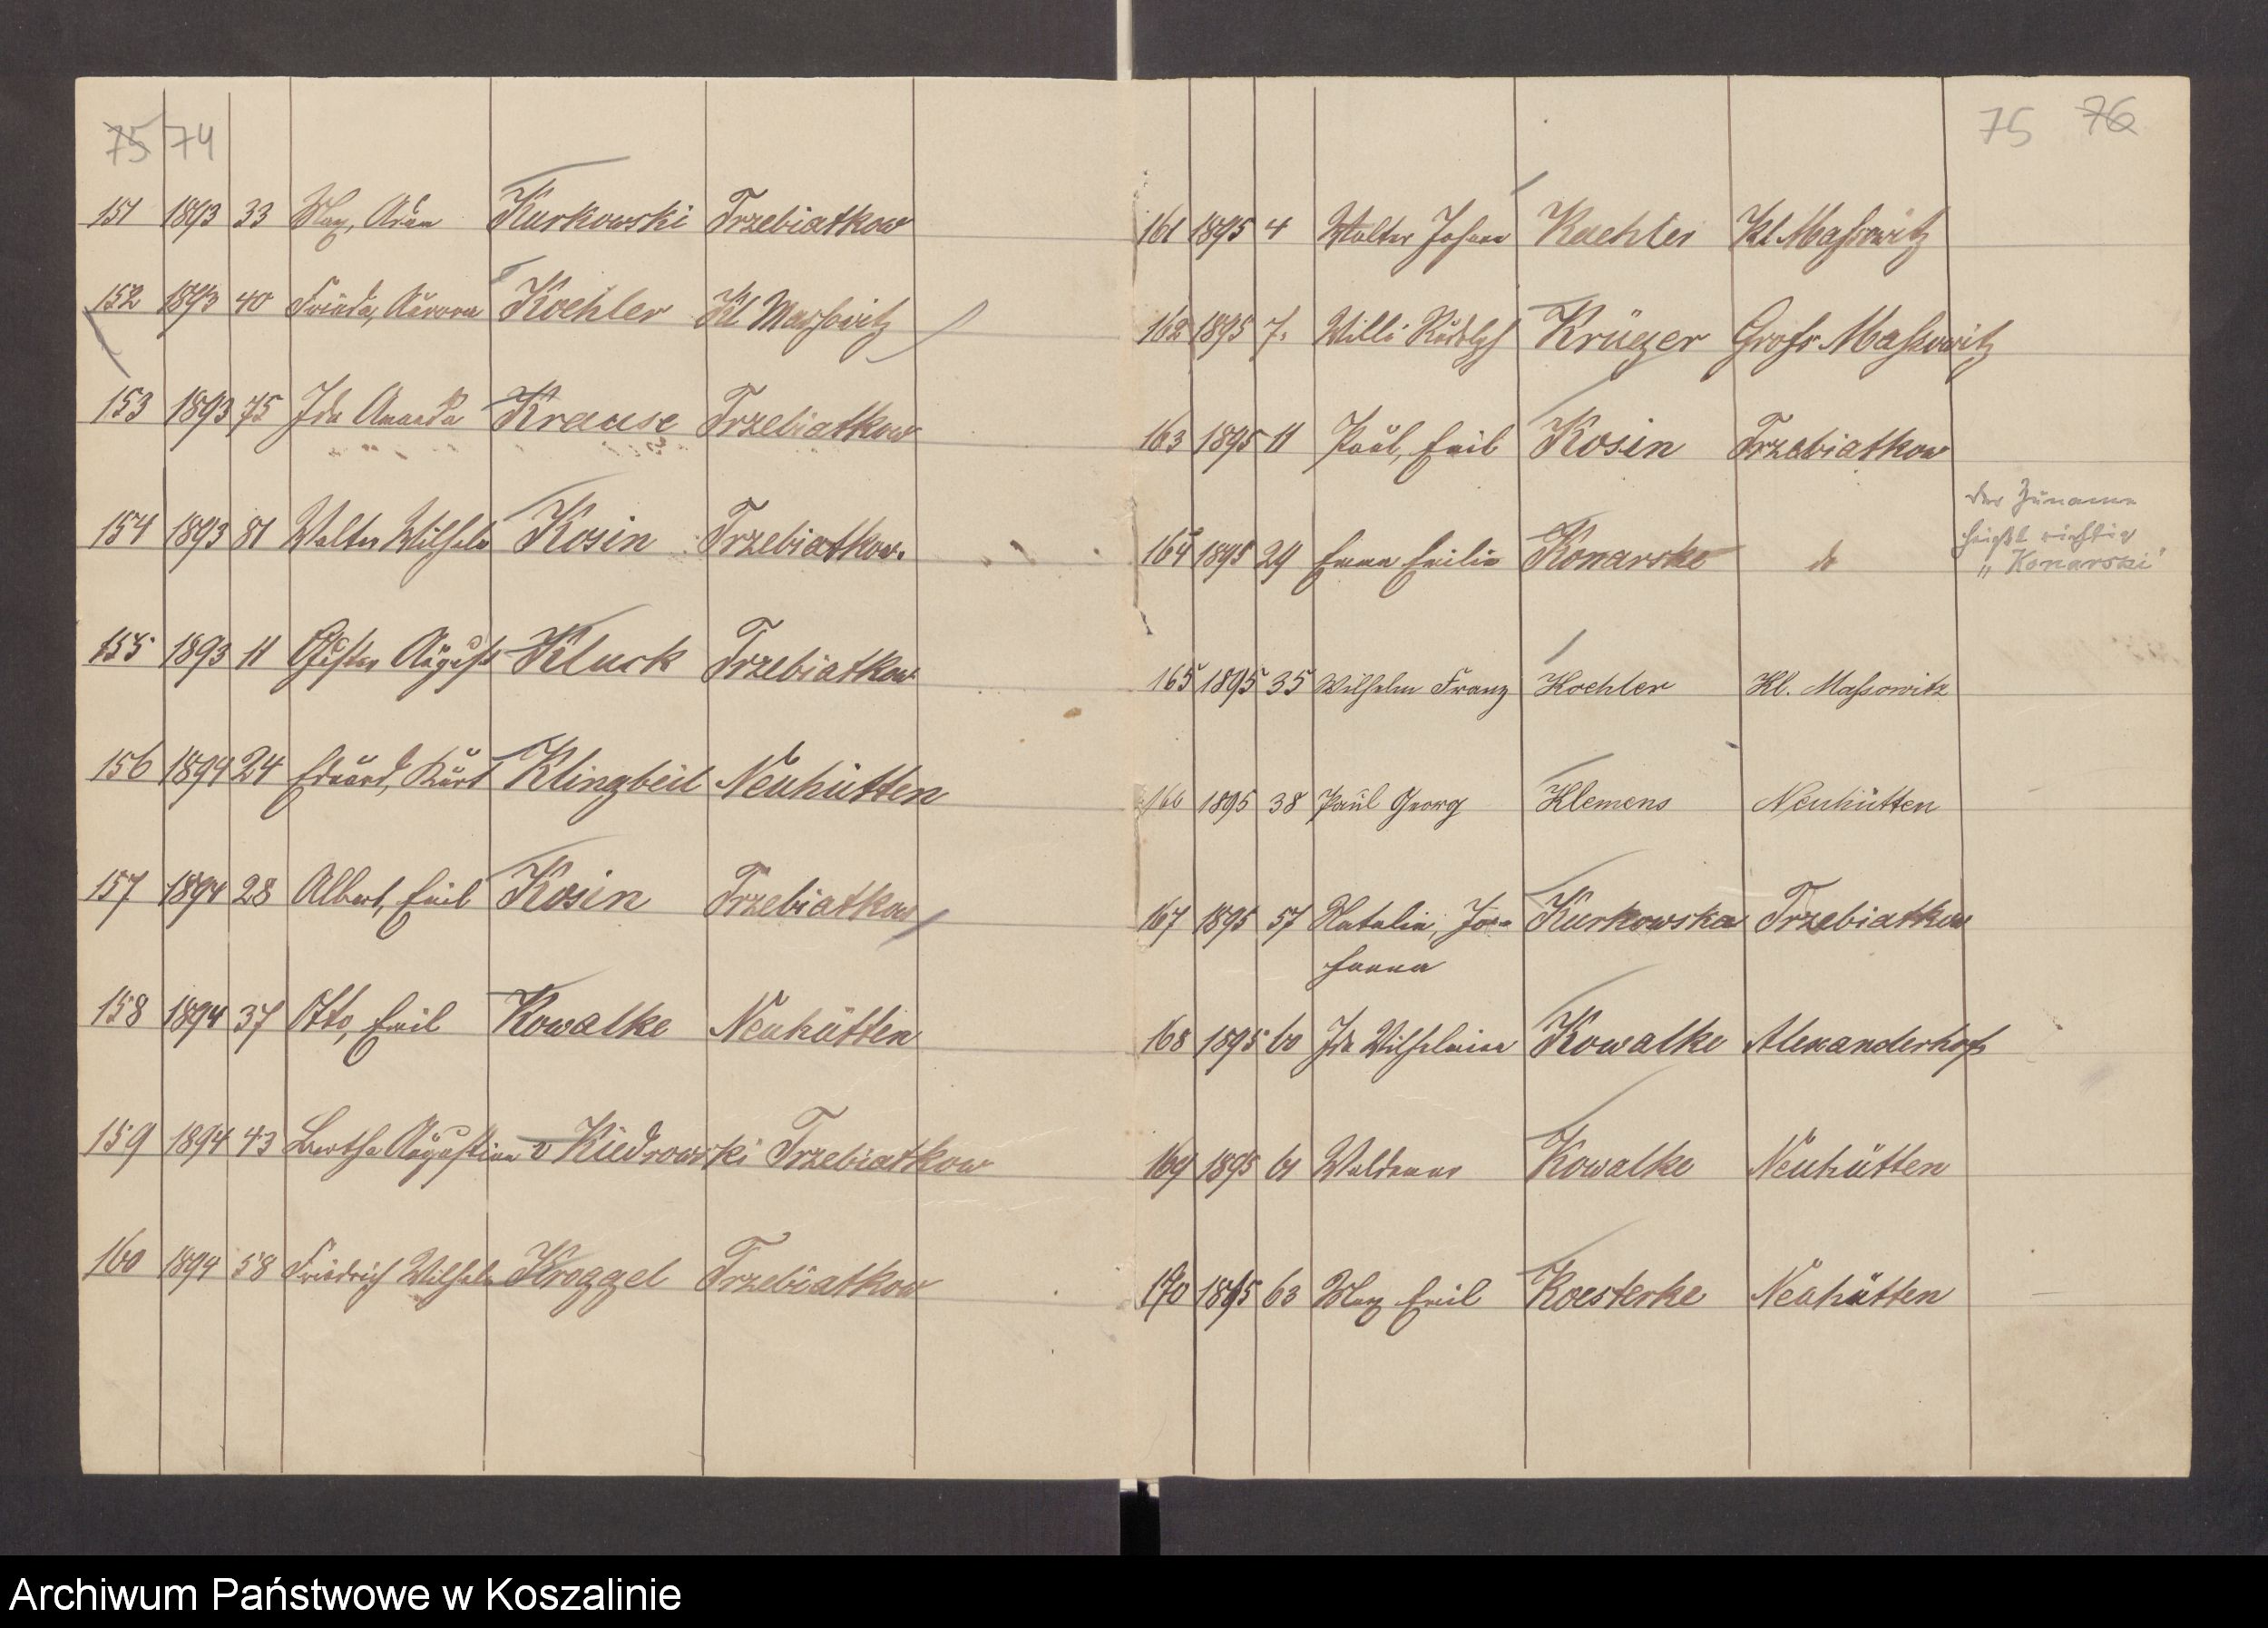 75 74
151 1893 33 Max, Adam Kurkowski Trzebiatkow
152 1893 40 Frieda, Aurora Koehler Kl Massowitz
153 1893 75 Ida Amanda Krause Trzebiatkow
154 1893 81 Walter Wilhelm Kosin Trzebiatkow.
155 1893 11 August Kluck Trzebiatkow
156 1894 24 Eduard, Kurt Klingbeil Neuhütten
157 1894 28 Albert, Emil Kosin Trzebiatkow
158 1894 37 Otto, Emil Kowalke Neuhütten
159 1894 43 Bertha Augustine v Kiedrowski Trzebiatkow
160 1894 58 Friedrich Wilhelm Kroggel Trzebiatkow
75 76
161 1895 4 Walter Johann Kaehler Kl. Maßowitz
162 1895 7. Willi Rudolph Krüger Groß Maßowitz
163 1895 11 Paul, Emil Kosin Trzebiatkow
164 1895 29 Emma Emilie Konarske do
der Zuname
heißt richtig
„Konarski"
165 1895 35 Wilhelm Franz Koehler Kl. Maßowitz
166 1895 38 Paul Georg Klemens Neuhütten
167 1895 57 Natalie, Jo-
hanna Kurkowska Trzebiatkow
168 1895 60 Ida Wilhelmine Kowalke Alexanderhof
169 1895 61 Waldemar Kowalke Neuhütten
170 1895 63 Max Emil Koesterke Neuhütten
Archiwum Państwowe w Koszalinie